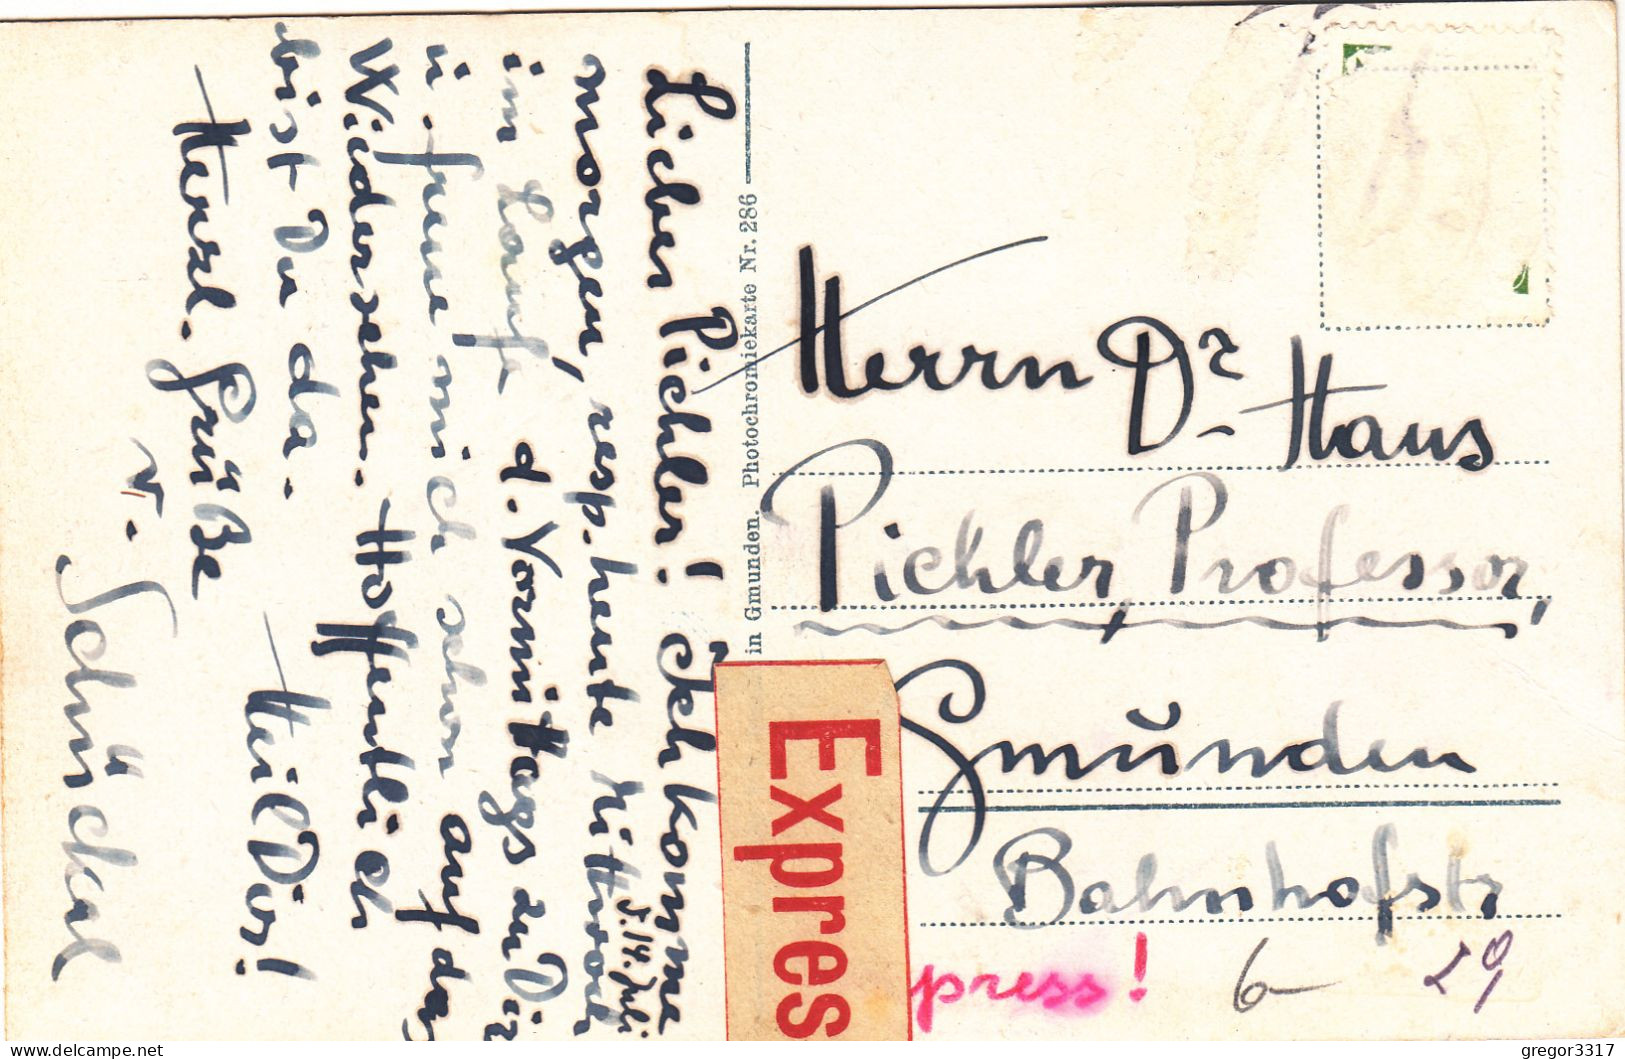 Lieber Pichler! Ich komme
morgen, resp. heute Mittwoch
d. 14. Juli
im Laufe d. Vormittags zu Dir
u. freue mich schon auf das
Wiedersehen. Hoffentlich
bist Du da. Heil Dir!
Herzl. Grüße
v. Schückal
in Gmunden. Photochromiekarte Nr. 286
Herrn Dr. Hans
Pichler, Professor,
Gmunden
Bahnhofstr
6
29
press!
Expres
gregor3317